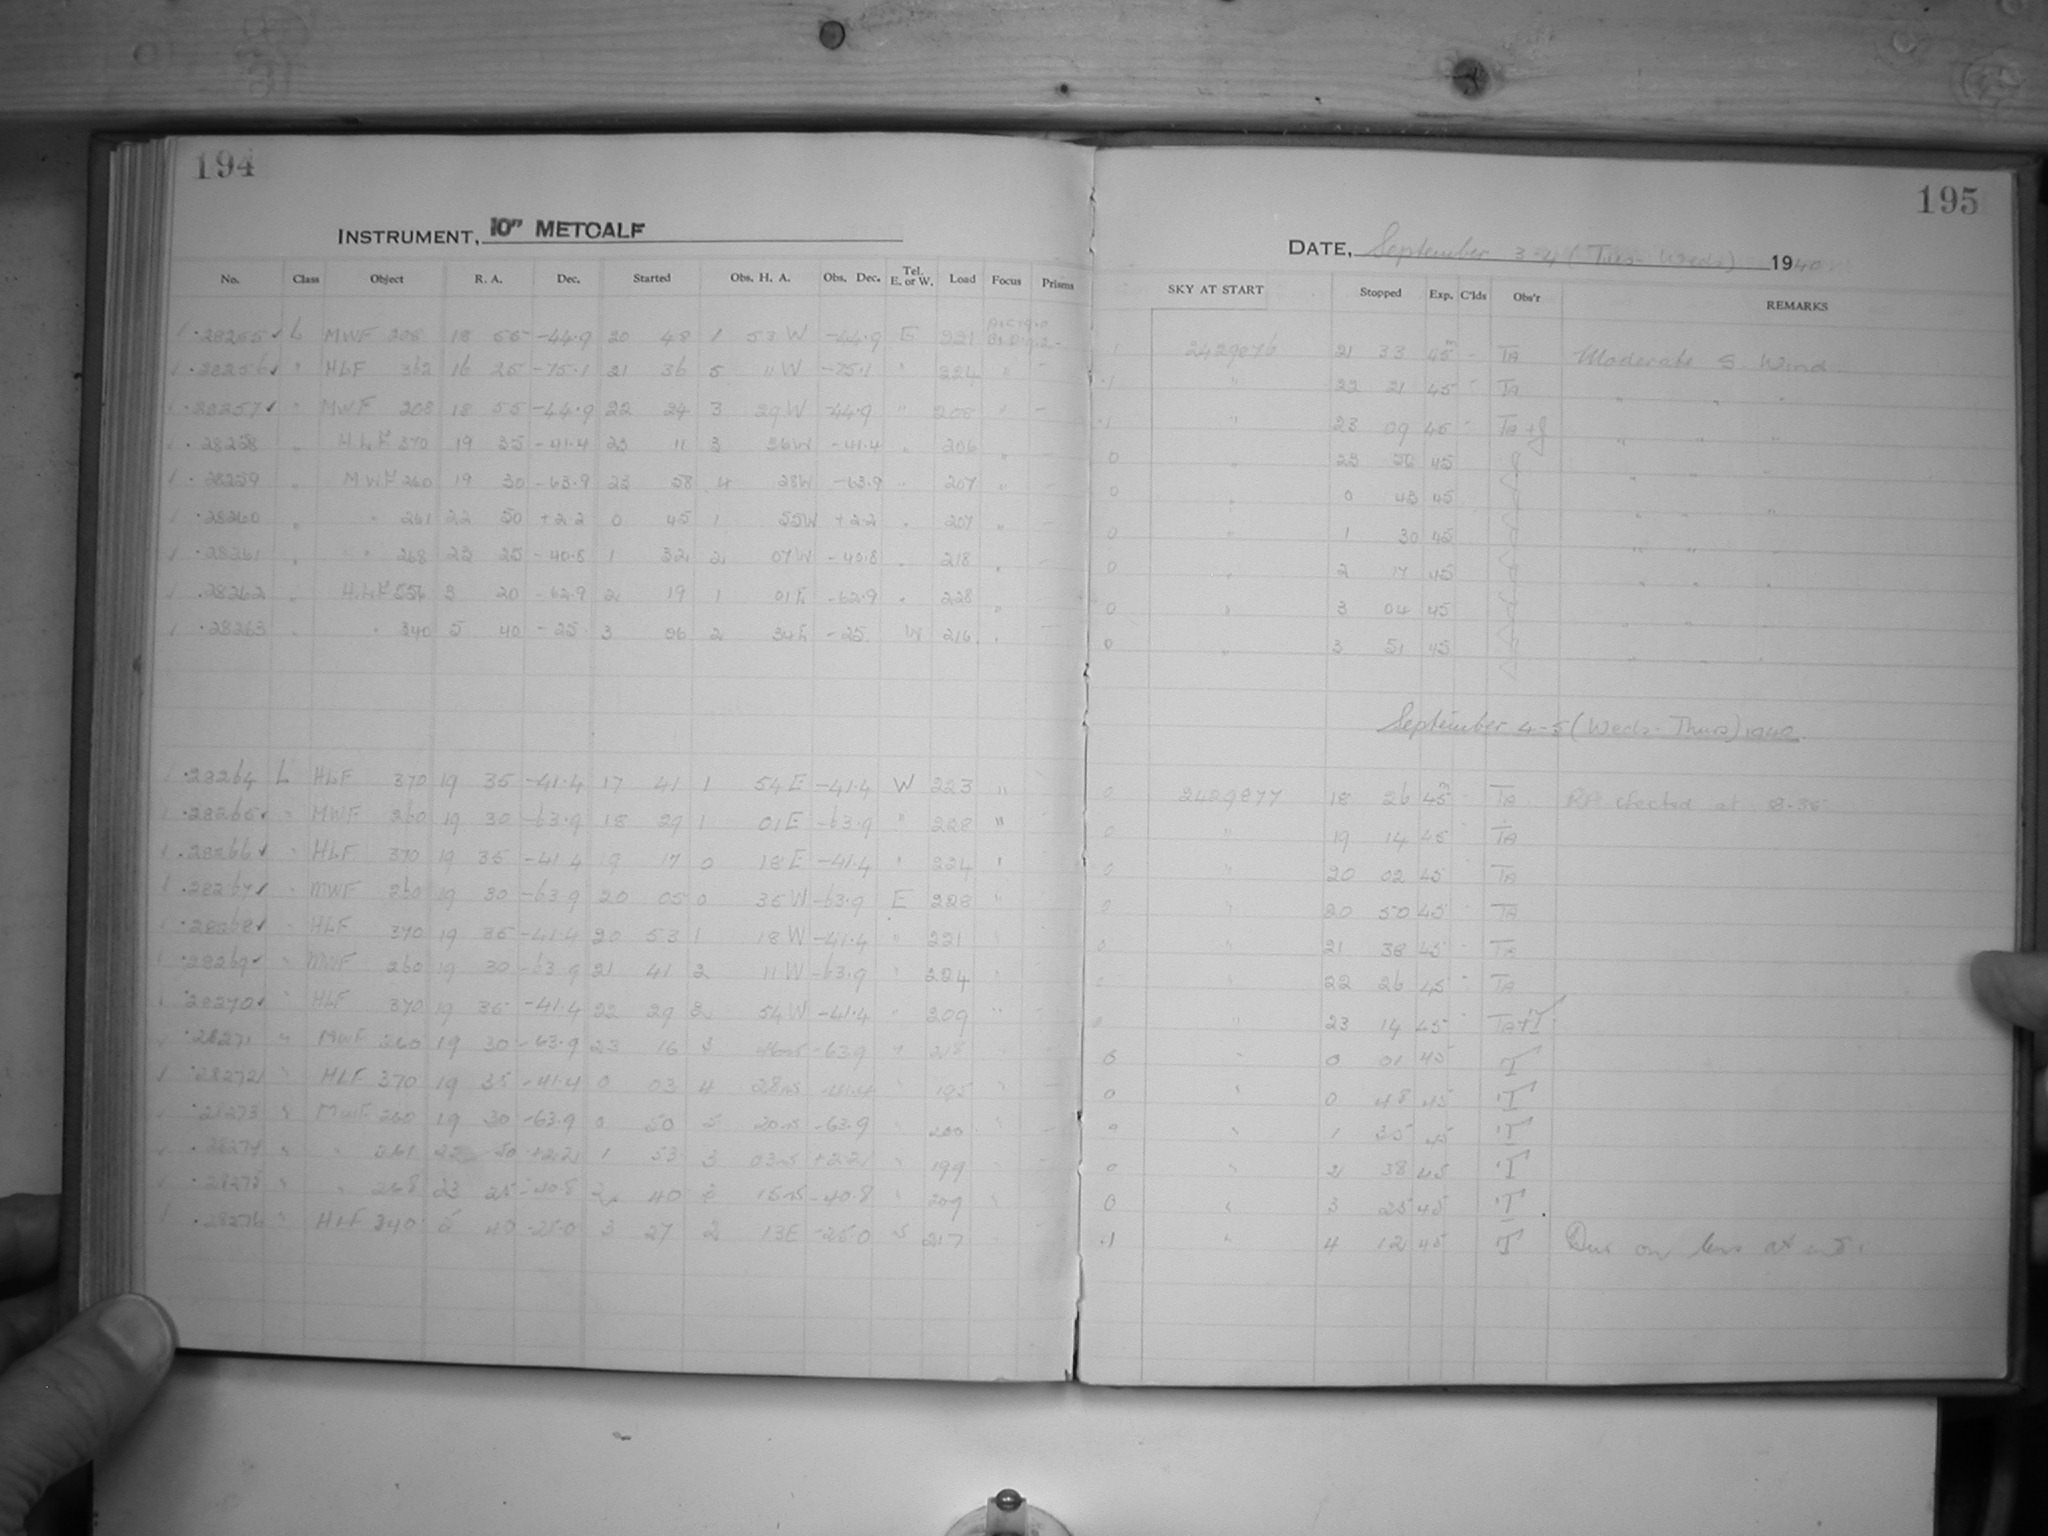 194
INSTRUMENT, 10" METCALF
No. Class Object R. A. Dec. Started Obs. H. A. Obs. Dec. Tel. E. or W. Load Focus Prisms
28255 L MWF 208 18 55 -44.9 20 48 1 53 W -44.9 E 221
28256 " HLF 362 16 25 -75.1 21 36 5 11 W -75.1 " 224 "
28257 " MWF 208 18 55 -44.9 22 24 3 29 W -44.9 " 208 "
28258 " HLF 370 19 35 -41.4 23 11 3 36 W -41.4 " 206 "
28259 " MWF 260 19 30 -63.9 23 58 4 28 W -63.9 " 207 "
28260 " " 261 22 50 +2.2 0 45 1 55 W +2.2 " 207 "
28261 " " 268 23 25 -40.8 1 32 2 07 W -40.8 " 218 "
28262 " HLF 556 3 20 -62.9 2 19 1 01 E -62.9 " 228 "
28263 " " 340 5 40 -25 3 06 2 34 E -25 W 216 "
28264 L HLF 370 19 35 -41.4 17 41 1 54 E -41.4 W 223 "
28265 " MWF 260 19 30 -63.9 18 29 1 01 E -63.9 " 228 "
28266 " HLF 370 19 35 -41.4 19 17 0 18 E -41.4 " 224 "
28267 " MWF 260 19 30 -63.9 20 05 0 35 W -63.9 E 228 "
28268 " HLF 370 19 35 -41.4 20 53 1 18 W -41.4 " 221 "
28269 " MWF 260 19 30 -63.9 21 41 2 11 W -63.9 " 224 "
28270 " HLF 370 19 35 -41.4 22 29 2 54 W -41.4 " 209 "
28271 " MWF 260 19 30 -63.9 23 16 3 46 W -63.9 " 218
28272 " HLF 370 19 35 -41.4 0 03 4 28 W -41.4 " 195 "
28273 " MWF 260 19 30 -63.9 0 50 5 20 W -63.9 " 200 "
28274 " " 261 22 50 +2.2 1 53 3 03 W +2.2 " 199 "
28275 " " 268 23 25 -40.8 2 40 3 15 W -40.8 " 209 "
28276 " HLF 340 5 40 -25.0 3 27 2 13 E -25.0 217
195
DATE, September 3-4 (Tues-Weds) 1940
SKY AT START Stopped Exp. C'lds Obs'r REMARKS
.1 2429876 21 33 45m - TA Moderate S. Wind
.1 " 22 21 45 - TA " " "
.1 " 23 09 45 - TA + J " " "
0 " 23 56 45 J " " "
0 " 0 43 45 J " " "
0 " 1 30 45 J " " "
0 " 2 17 45 J " " "
0 " 3 04 45 J " " "
0 " 3 51 45 J " " "
September 4-5 (Weds-Thurs) 1940.
0 2429877 18 26 45m - TA RA checked at 18.35
0 " 19 14 45 - TA
0 " 20 02 45 TA
0 " 20 50 45 - TA
0 " 21 38 45 - TA
0 " 22 26 45 - TA
0 " 23 14 45 - TA + T
0 " 0 01 45 T
0 " 0 48 45 T
0 " 1 35 45 T
0 " 2 38 45 T
0 " 3 25 45 T
.1 " 4 12 45 T Dew on lens at